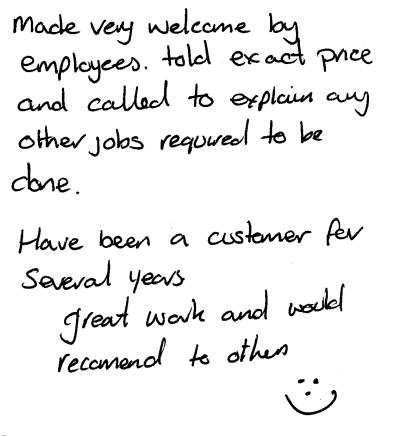 Made very welcome by
employees. told exact price
and called to explain any
other jobs required to be
done.
Have been a customer for
Several years
great work and would
recomend to others